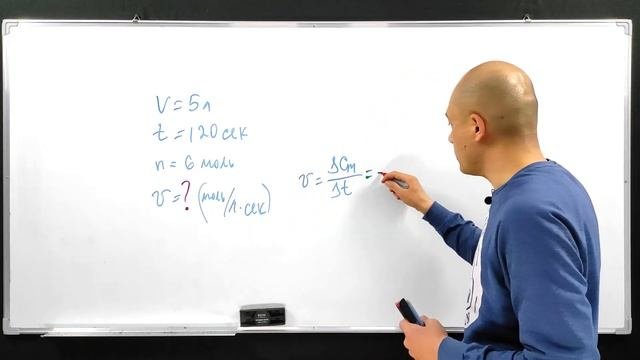 V = 5л
t = 120 сек
n = 6 моль
υ = ? (моль/л·сек)
υ = ΔCм/Δt =